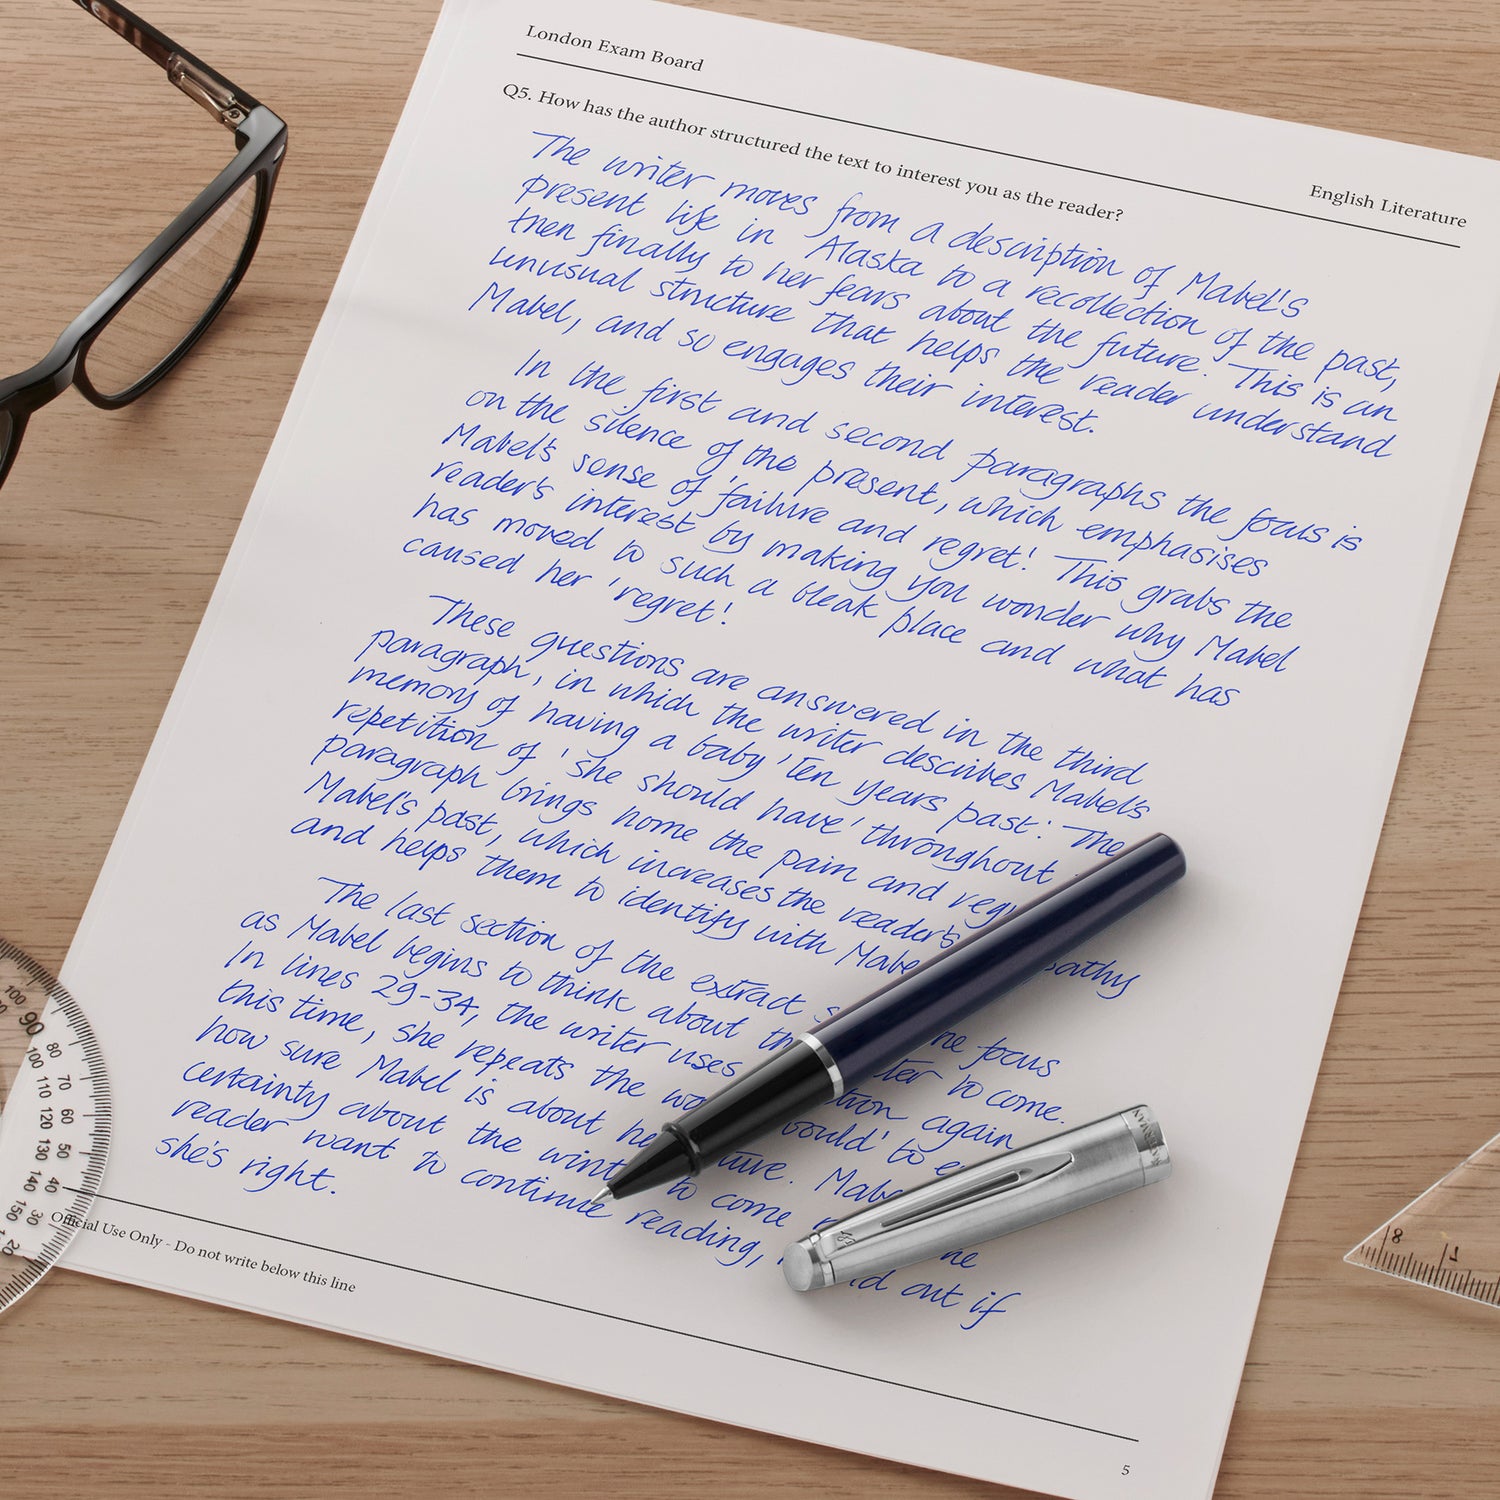 London Exam Board
English Literature
Q5. How has the author structured the text to interest you as the reader?
The writer moves from a description of Mabel's
present life in Alaska to a recollection of the past,
then finally to her fears about the future. This is an
unusual structure that helps the reader understand
Mabel, and so engages their interest.
In the first and second paragraphs the focus is
on the silence of the present, which emphasises
Mabel's sense of 'failure and regret'. This grabs the
reader's interest by making you wonder why Mabel
has moved to such a bleak place and what has
caused her 'regret'.
These questions are answered in the third
paragraph, in which the writer describes Mabel's
memory of having a baby 'ten years past'. The
repetition of 'she should have' throughout
paragraph brings home the pain and
Mabel's past, which increases the reader's
and helps them to identify with
The last section of the extract focus
as Mabel begins to think about to come.
In lines 29-34, the writer uses again
this time, she repeats the to
how sure Mabel is about
certainty about the to come
reader want to continue reading, out if
she's right.
Official Use Only - Do not write below this line
5
100
90
80
70
60
50
40
30
20
100
110
120
130
140
150
WATERMAN
8
7